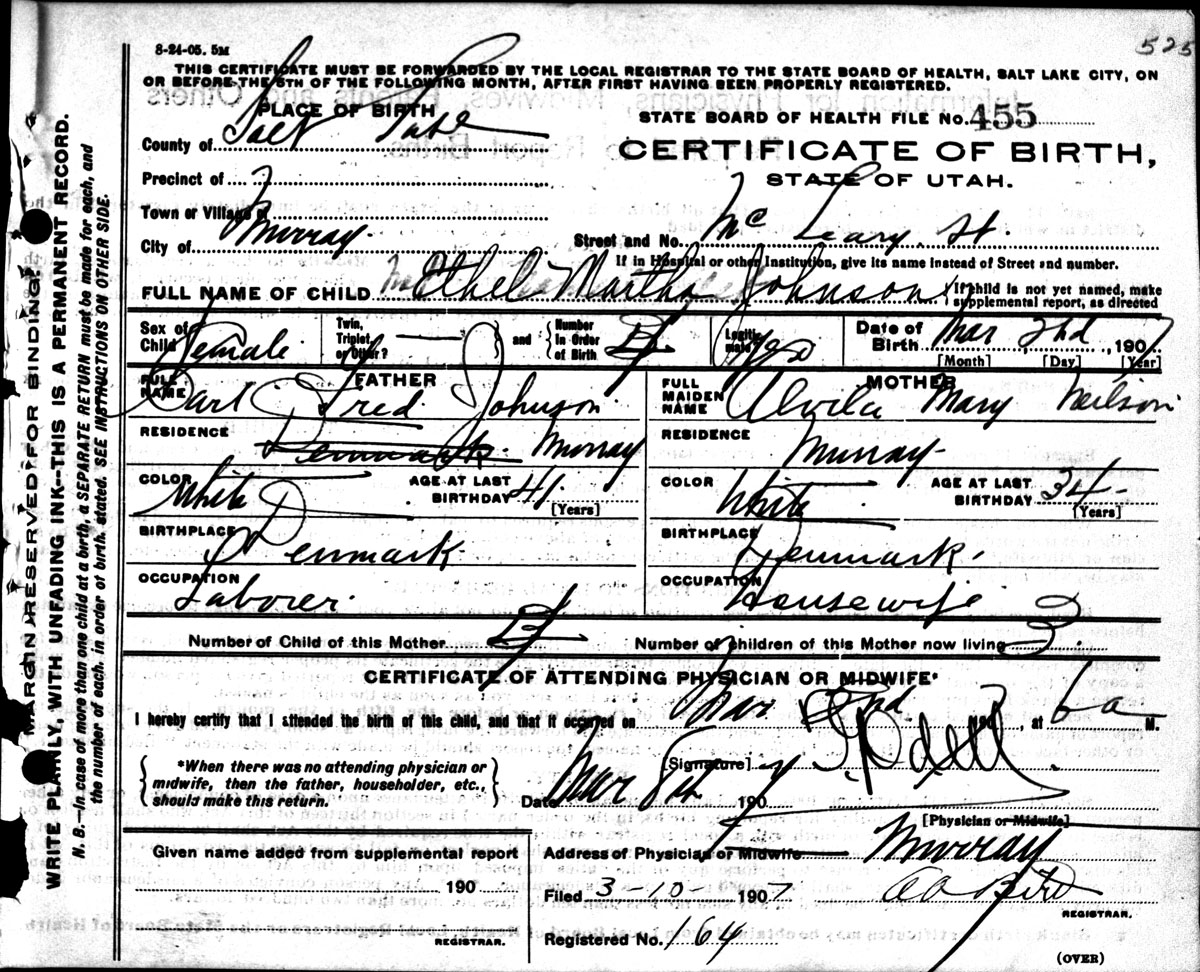 525
8-24-05. 5M
THIS CERTIFICATE MUST BE FORWARDED BY THE LOCAL REGISTRAR TO THE STATE BOARD OF HEALTH, SALT LAKE CITY, ON
OR BEFORE THE 5TH OF THE FOLLOWING MONTH, AFTER FIRST HAVING BEEN PROPERLY REGISTERED.
PLACE OF BIRTH
STATE BOARD OF HEALTH FILE No. 455
County of Salt Lake
CERTIFICATE OF BIRTH,
STATE OF UTAH.
Precinct of
Town or Village of
City of Murray
Street and No. Mc Leary St
If in Hospital or other Institution, give its name instead of Street and number.
FULL NAME OF CHILD Ethel Martha Johnson
If child is not yet named, make supplemental report, as directed
Sex of Child Female
Twin, Triplet, or Other?
and
Number In Order of Birth 4
Legitimate? Yes
Date of Birth Mar 2nd, 1907
[Month] [Day] [Year]
FATHER
FULL NAME Carl Fred Johnson
RESIDENCE Denmark Murray
COLOR White
AGE AT LAST BIRTHDAY 41
[Years]
BIRTHPLACE Denmark
OCCUPATION Laborer
MOTHER
FULL MAIDEN NAME Alvila Mary Neilson
RESIDENCE Murray
COLOR White
AGE AT LAST BIRTHDAY 34
[Years]
BIRTHPLACE Denmark
OCCUPATION Housewife
Number of Child of this Mother 4
Number of children of this Mother now living 3
CERTIFICATE OF ATTENDING PHYSICIAN OR MIDWIFE*
I hereby certify that I attended the birth of this child, and that it occurred on Mar 2nd 190, at 6 a M.
*When there was no attending physician or
midwife, then the father, householder, etc.,
should make this return.
[Signature]
Date Mar 8th 1907
[Physician or Midwife]
Address of Physician or Midwife Murray
Given name added from supplemental report
190
REGISTRAR.
Filed 3-10-1907
REGISTRAR.
Registered No. 164
(OVER)
MARGIN RESERVED FOR BINDING.
WRITE PLAINLY, WITH UNFADING INK--THIS IS A PERMANENT RECORD.
N. B.--In case of more than one child at a birth, a SEPARATE RETURN must be made for each, and
the number of each, in order of birth, stated. SEE INSTRUCTIONS ON OTHER SIDE.